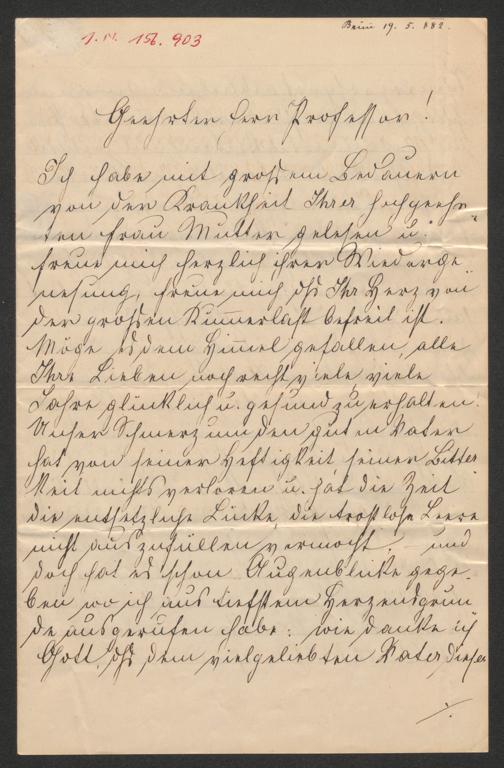 19. 5. 882.
J. N. 156.903
Geehrter Herr Professor!
Ich habe mit großem Bedauern
von der Krankheit Ihrer hochgeehr-
ten Frau Mutter gelesen u.
freue mich herzlich ihrer Wiederge-
nesung, freue mich dß Ihr Herz von
der großen Kum̄erlast befreit ist.
Möge es dem Him̄el gefallen, alle
Ihre Lieben noch recht viele, viele
Jahre glücklich u. gesund zu erhalten!
Unser Schmerz um den guten Vater
hat von seiner Heftigkeit, seiner Bitter
keit nichts verloren u. hat die Zeit
die entsetzliche Lücke, die trostlose Leere
nicht auszufüllen vermocht; – und
doch hat es schon Augenblicke gege-
ben wo ich aus tiefstem Herzensgrun
de ausgerufen habe: wie danke ich
Gott, dß dem vielgeliebten Vater dieser
./.